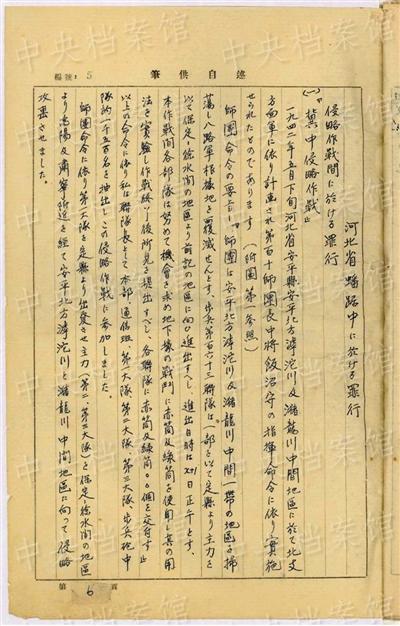 中央档案馆
編號: 5
述自供筆
河北省蟠踞中に於ける罪行
侵略作戰間に於ける罪行
(一)『冀中侵略作戰』
一九四二年五月下旬河北省安平縣安平北方滹沱川及瀦龍川中間地區に於て北支
方面軍に依り計画され第百十師團長中將飯沼守の指揮命令に依り實施
せられたものであります (附圖第一参照)
師團命令の要旨『師團は安平北方滹沱川及瀦龍川中間一帶の地區を掃
蕩し八路軍根據地を覆滅せんとす。歩兵第百六十三聯隊は一部を以て定縣より主力を
以て保定、徐水間の地區より前記の地區に向ひ進出すべし 進出日時は 日正午とす。
本作戰間各部隊は努めて機會を求め地下壕の戰鬥に赤筒及綠筒を使用し其の用
法を實驗し作戰終了後所見を提出すべし、各聯隊に赤筒及綠筒 個を交付す』
以上の命令に依り私は聯隊長として本部通信班 第一大隊、第二大隊、第三大隊、歩兵砲中
隊約一千五百名を抽出しこの侵略作戰に参加しました。
師團命令に依り第一大隊を定縣より出發させ主力(第二、第三大隊)を保定、徐水間の地區
より高陽及肅寧附近を経て安平北方滹沱川と瀦龍川中間地區に向つて侵略
攻擊させました。
第 6 頁
中央档案馆